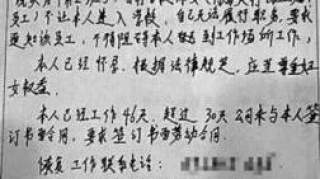 员工）不让本人进入学校，自己无法履行职务，要求
通知该员工，不得阻碍本人到工作场所工作，
本人已经怀孕，根据法律规定，应尊重妇
女权益。
本人已经工作46天，超过30天公司未与本人签
订书面合同，要求签订书面劳动合同。
恢复工作联系电话：